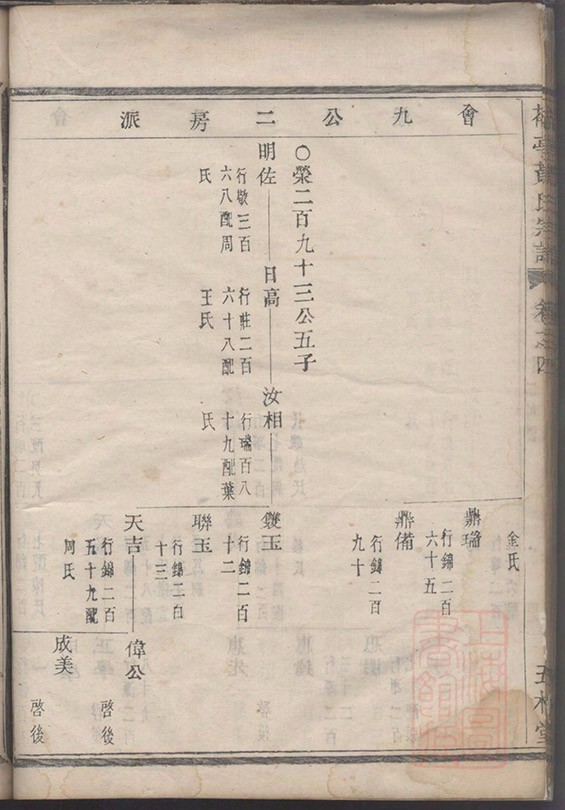 會九公二房派
氏宗譜
卷之四
金氏
鼎瑞
行錦二百
六十五
鼎備
行錦二百
九十
〇榮二百九十三公五子
明佐
行敬三百
六八配周
氏
日高
行莊二百
六十八配
王氏
汝相
行瑞百八
十九配葉
氏
雙玉
行錦二百
十二
聯玉
行錦二百
十三
天吉
行錦二百
五十九配
周氏
偉公
啓後
成美
啓後